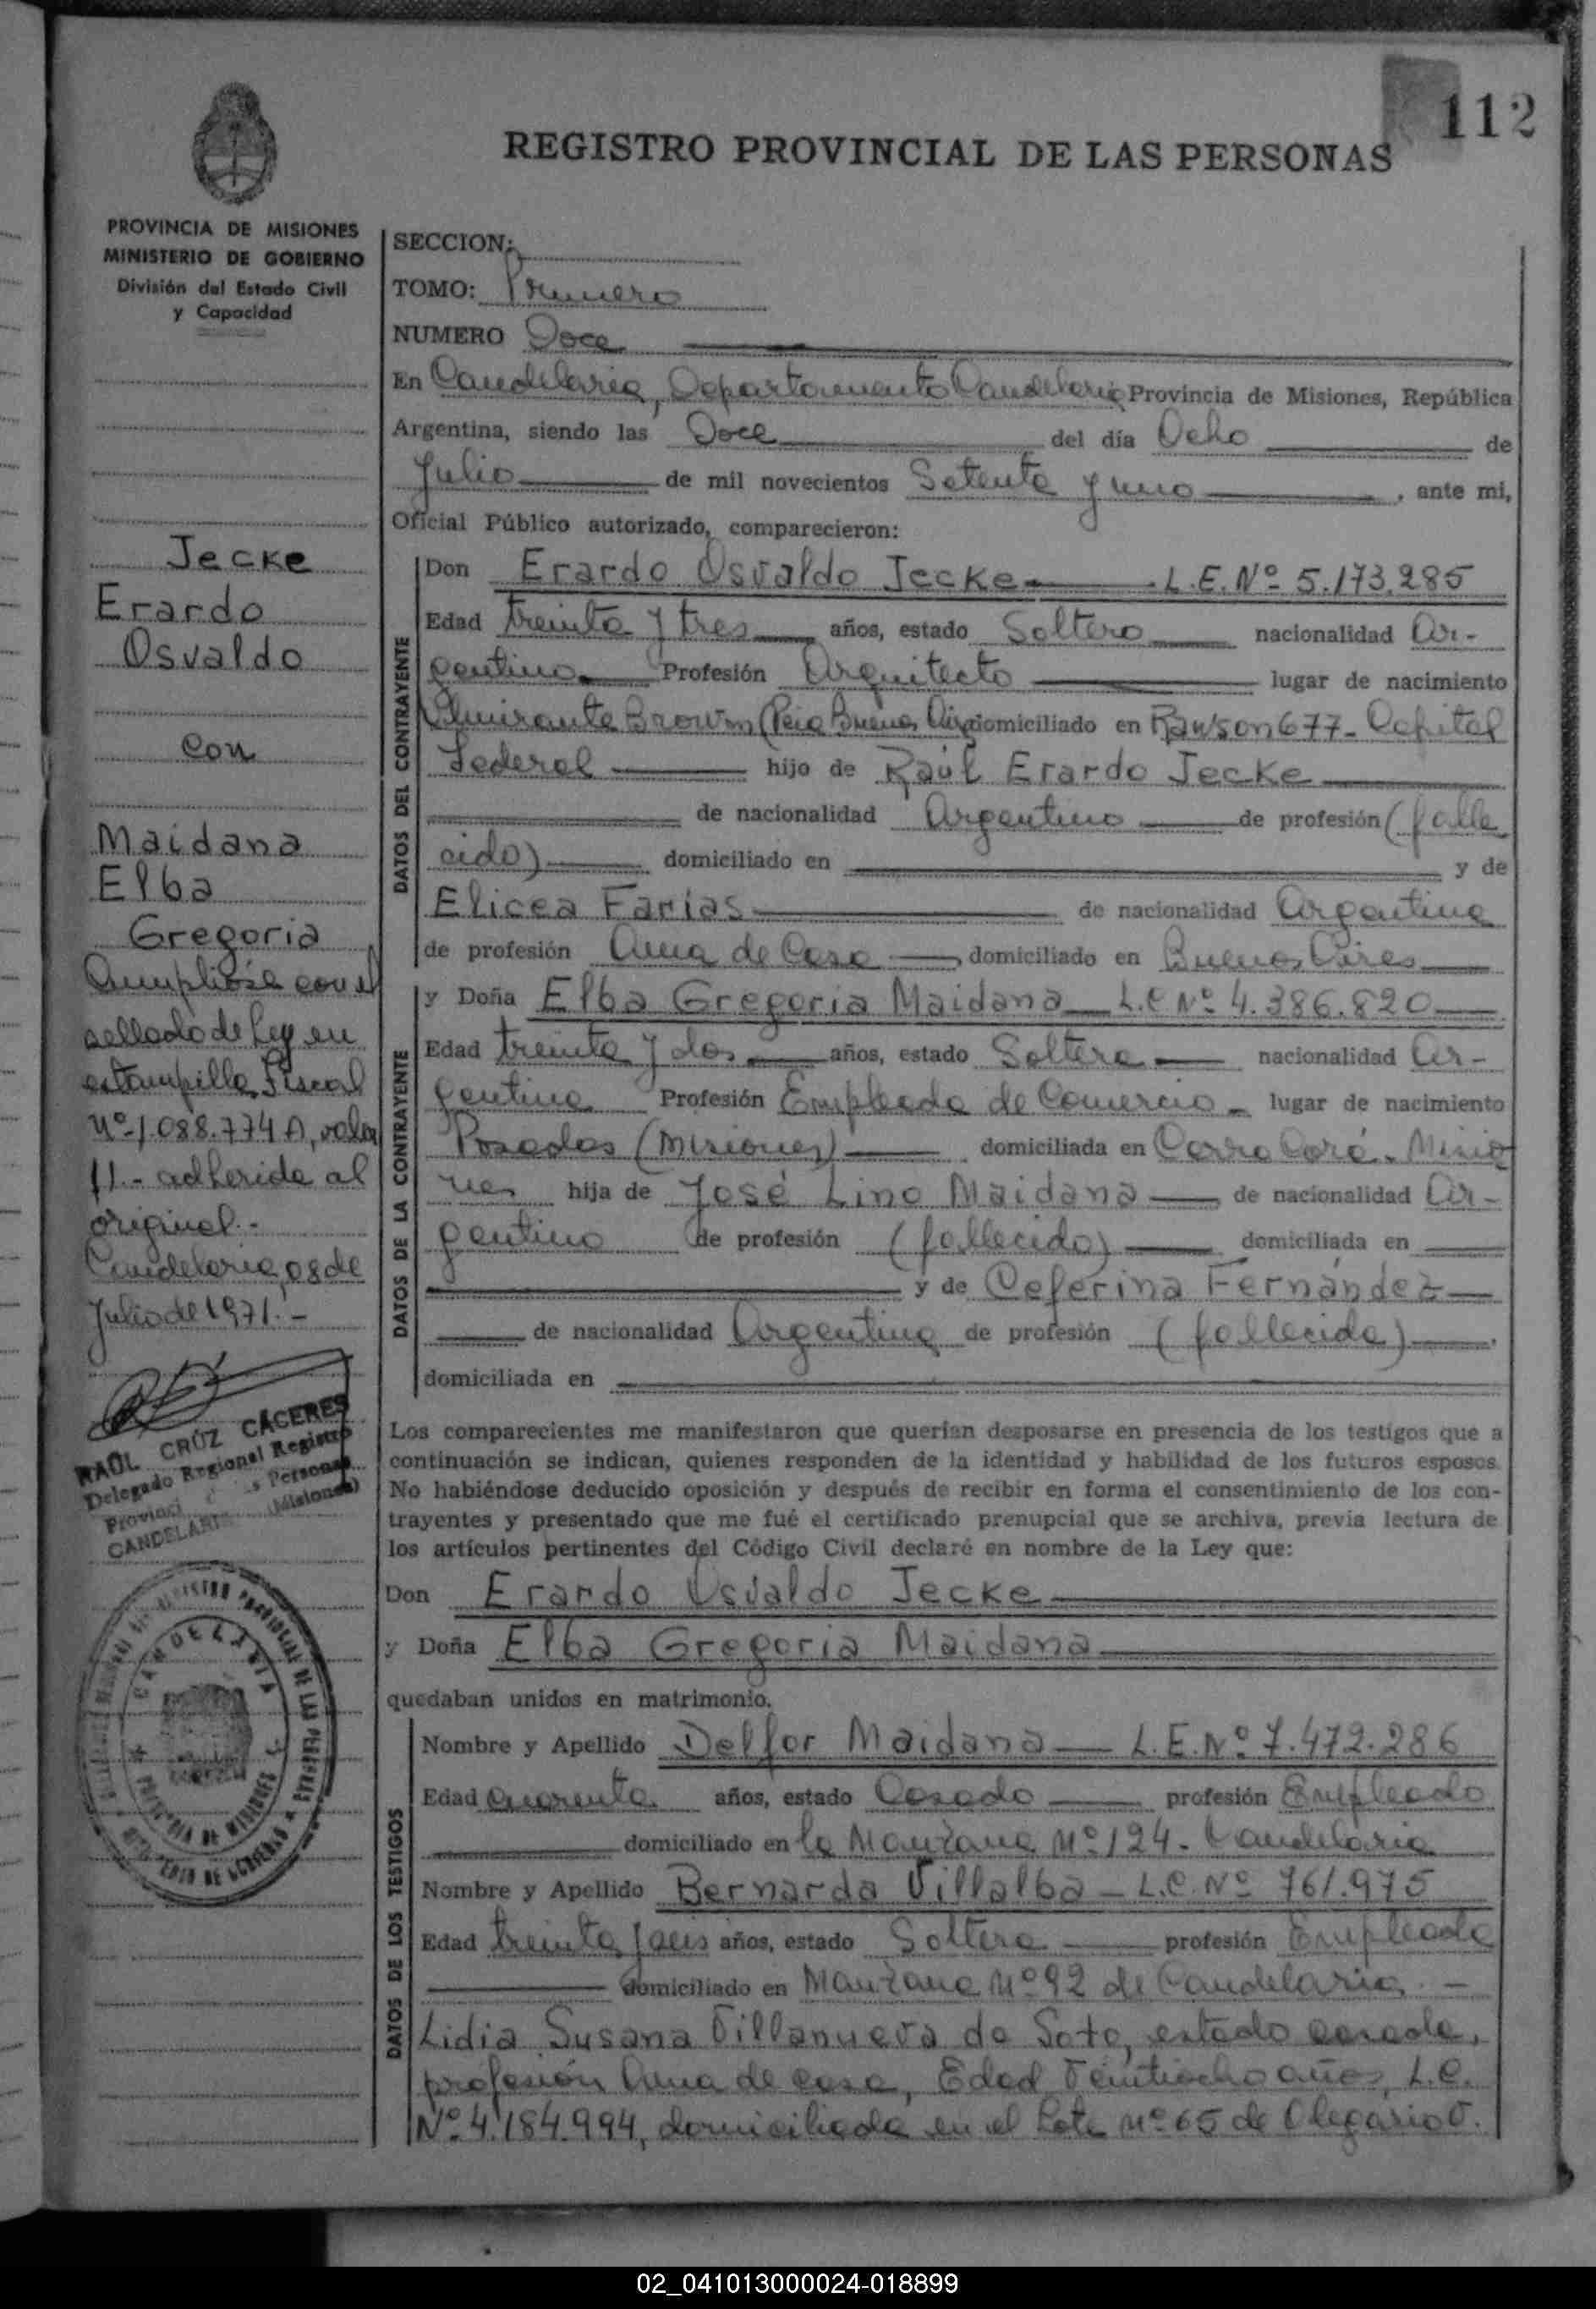 112
REGISTRO PROVINCIAL DE LAS PERSONAS
PROVINCIA DE MISIONES
MINISTERIO DE GOBIERNO
División del Estado Civil
y Capacidad
Jecke
Erardo
Osvaldo
con
Maidana
Elba
Gregoria
Cumplióse con el
sellado de Ley en
estampilla Fiscal
Nº 1.088.774 A, valor
11.- adherida al
original.-
Candelaria, 08 de
Julio de 1971.-
RAÚL CRUZ CÁCERES
Delegado Regional Registro
Provinci s Personas
CANDELARI (Misiones)
CANDELARIA
PROVINCIA DE MISIONES
SECCION:
TOMO: Primero
NUMERO Doce
En Candelaria, Departamento Candelaria Provincia de Misiones, República
Argentina, siendo las Doce del día Ocho de
Julio de mil novecientos Setenta y uno, ante mi,
Oficial Público autorizado, comparecieron:
DATOS DEL CONTRAYENTE
Don Erardo Osvaldo Jecke L.E.Nº 5.173.285
Edad treinta y tres años, estado Soltero nacionalidad Ar-
gentino Profesión Arquitecto lugar de nacimiento
Almirante Brown (Pcia Buenos Aires) domiciliado en Rawson 677 - Capital
Federal hijo de Raúl Erardo Jecke
de nacionalidad Argentino de profesión (falle
cido) domiciliado en y de
Elicea Farías de nacionalidad Argentina
de profesión Ama de Casa, domiciliado en Buenos Aires
DATOS DE LA CONTRAYENTE
y Doña Elba Gregoria Maidana L.C Nº 4.386.820
Edad treinta y dos años, estado Soltera nacionalidad Ar-
gentina Profesión Empleada de Comercio - lugar de nacimiento
Posadas (Misiones) domiciliada en Cerro Corá - Misio
nes hija de José Lino Maidana de nacionalidad Ar-
gentino de profesión (fallecido) domiciliada en
y de Ceferina Fernández
de nacionalidad Argentina de profesión (fallecida).
domiciliada en
Los comparecientes me manifestaron que querían desposarse en presencia de los testigos que a
continuación se indican, quienes responden de la identidad y habilidad de los futuros esposos.
No habiéndose deducido oposición y después de recibir en forma el consentimiento de los con-
trayentes y presentado que me fué el certificado prenupcial que se archiva, previa lectura de
los artículos pertinentes del Código Civil declaré en nombre de la Ley que:
Don Erardo Osvaldo Jecke
y Doña Elba Gregoria Maidana
quedaban unidos en matrimonio.
DATOS DE LOS TESTIGOS
Nombre y Apellido Delfor Maidana L.E.Nº 7.472.286
Edad cuarenta años, estado Casado profesión Empleado
domiciliado en la Manzana Nº 124 - Candelaria
Nombre y Apellido Bernarda Villalba - L.C. Nº 761.975
Edad treinta y seis años, estado Soltera profesión Empleada
domiciliado en Manzana Nº 92 de Candelaria. -
Lidia Susana Villanueva de Soto, estado casada,
profesión Ama de casa, Edad Veintiocho años, L.C.
Nº 4.184.994, domiciliada en el Lote Nº 65 de Olegario V.
02_041013000024-018899